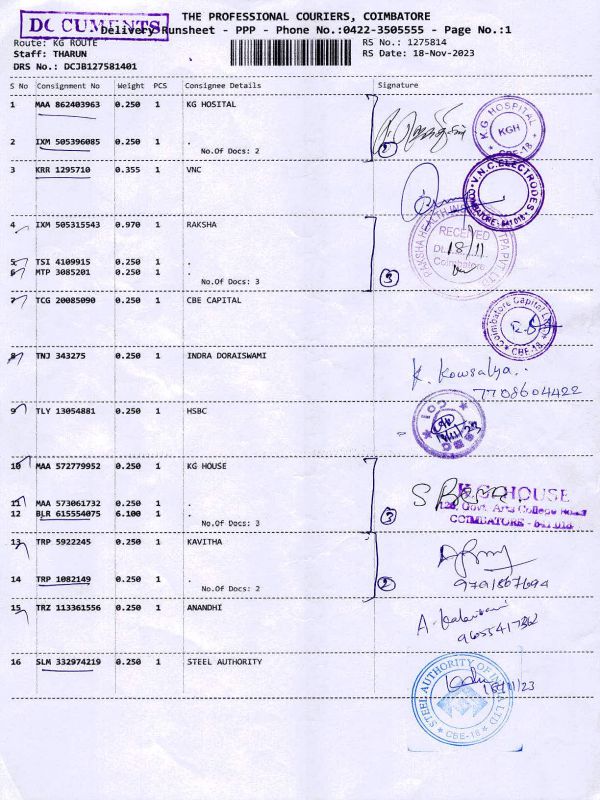 DOCUMENTS
THE PROFESSIONAL COURIERS, COIMBATORE
Delivery Runsheet - PPP - Phone No.:0422-3505555 - Page No.:1
Route: KG ROUTE
RS No.: 1275814
Staff: THARUN
RS Date: 18-Nov-2023
DRS No.: DCJB127581401
S No Consignment No Weight PCS Consignee Details Signature
1 MAA 862403963 0.250 1 KG HOSITAL
K.G HOSPITAL
KGH
CBE-18
2 IXM 505396085 0.250 1 .
No.Of Docs: 2
2
3 KRR 1295710 0.355 1 VNC
V.N.C. ELECTRODES
COIMBATORE-641 018
4 IXM 505315543 0.970 1 RAKSHA
RAKSHA HEALTH
RECEIVED
18/11
Coimbatore
5 TSI 4109915 0.250 1 .
6 MTP 3085201 0.250 1 .
No.Of Docs: 3
3
7 TCG 20085090 0.250 1 CBE CAPITAL
Coimbatore Capital
CBE-18
8 TNJ 343275 0.250 1 INDRA DORAISWAMI
K. Kowsalya..
7708604422
9 TLY 13054881 0.250 1 HSBC
10 MAA 572779952 0.250 1 KG HOUSE
K.G. HOUSE
Govt. Arts College Road
COIMBATORE - 641 018
11 MAA 573061732 0.250 1 .
12 BLR 615554075 6.100 1 .
No.Of Docs: 3
3
13 TRP 5922245 0.250 1 KAVITHA
14 TRP 1082149 0.250 1 .
No.Of Docs: 2
2
9791867694
15 TRZ 113361556 0.250 1 ANANDHI
16 SLM 332974219 0.250 1 STEEL AUTHORITY
STEEL AUTHORITY OF INDIA LTD
18/11/23
CBE-18